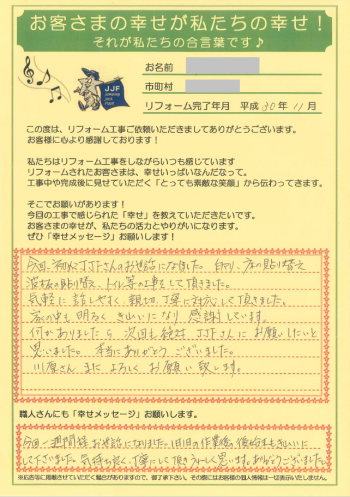 お客さまの幸せが私たちの幸せ！
それが私たちの合言葉です♪
JJF
お名前
市町村
リフォーム完了年月 平成 30年 11月
この度は、リフォーム工事ご依頼いただきましてありがとうございます。
お客様に心より感謝しております！
私たちはリフォーム工事をしながらいつも感じています
リフォームされたお客さまは、幸せいっぱいなんだなって。
工事中や完成後に見せていただく「とっても素敵な笑顔」から伝わってきます。
そこでお願いがあります！
今回の工事で感じられた「幸せ」を教えていただきたいです。
お客さまの幸せが、私たちの活力とやりがいになります。
ぜひ「幸せメッセージ」お願いします！
今回、初めてJJFさんのお世話になりました。 床の貼り替え
トイレ等の工事をして頂きました。
気軽に話しやすく 親切、丁寧に対応して頂きました。
家の中も明るく きれいになり 感謝しています。
何かありましたら 次回も絶対 JJFさんにお願いしたいと
思いました。 本当にありがとうございました。
川原さん またよろしくお願い致します。
職人さんにも「幸せメッセージ」お願いします。
今回一週間程お世話になりました。 作業後の後片付もきれいに
して下さいました。気持ち良く、丁寧にして頂きうれしく思います。ありがとうございました。
※広告等に掲載させていただく場合がありますので、御了承下さい。その際にはお客様の個人情報は一切表示いたしません。